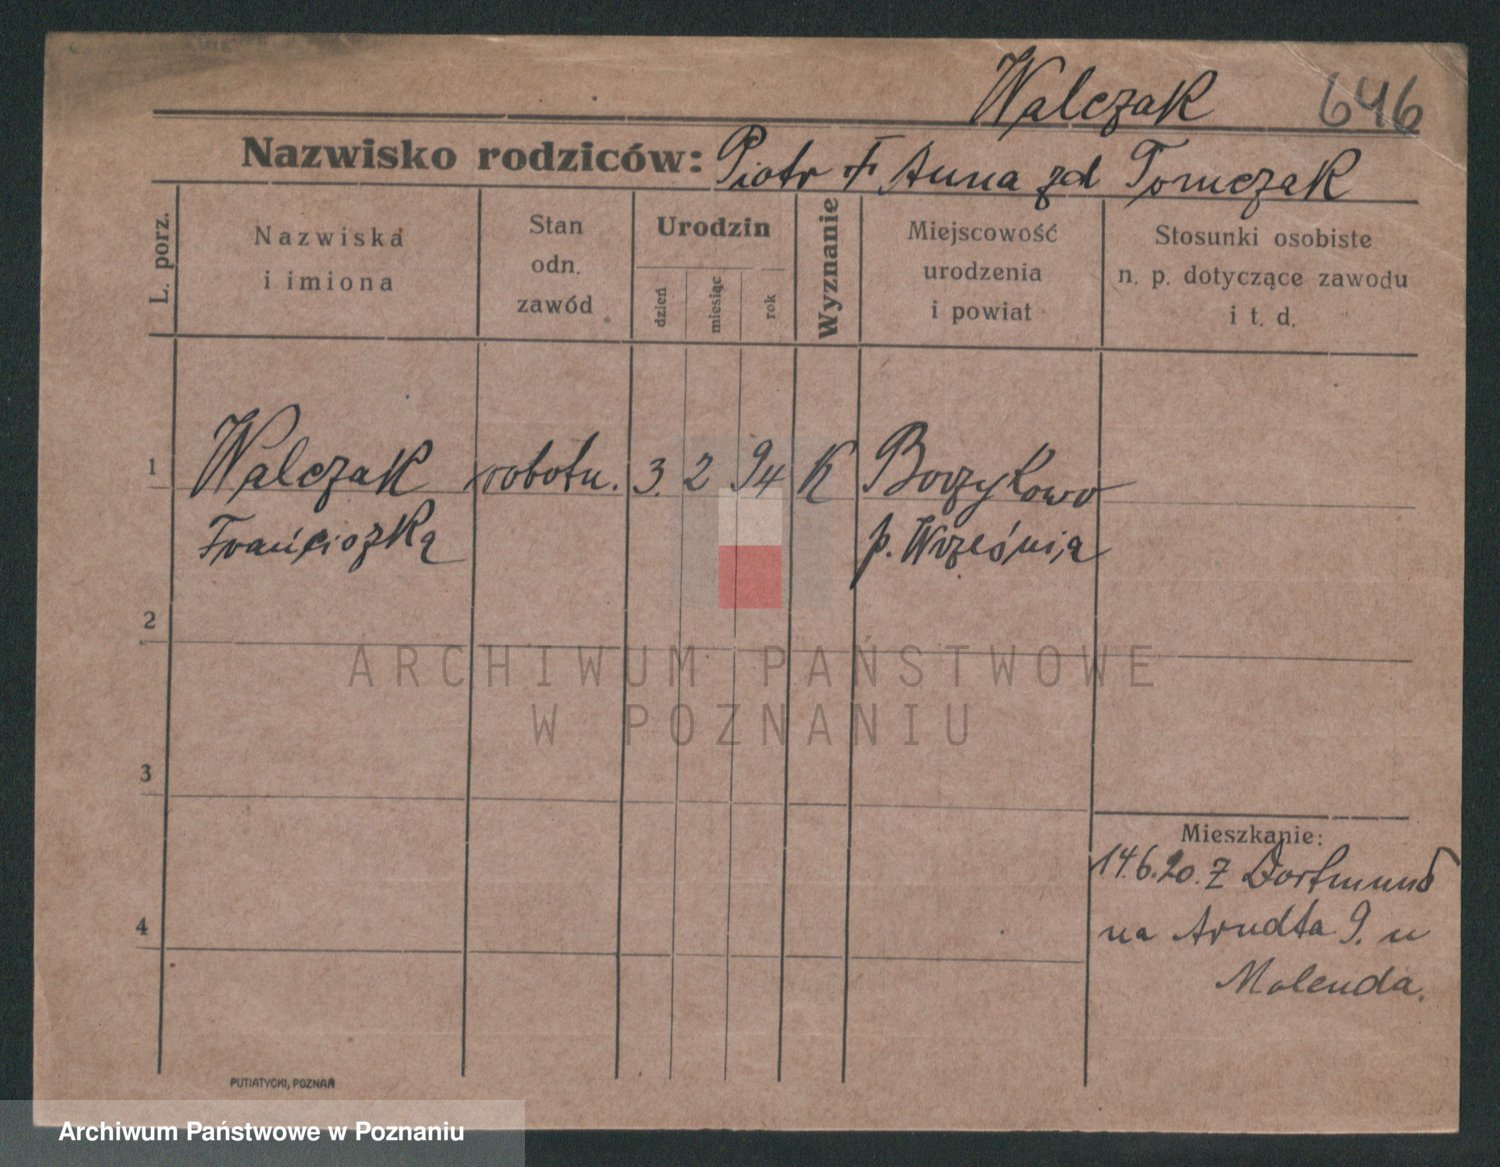 Walczak 646
Nazwisko rodziców: Piotr + Anna zd Tomczak
L. porz.
Nazwiska
i imiona
Stan
odn.
zawód
Urodzin
dzień
miesiąc
rok
Wyznanie
Miejscowość
urodzenia
i powiat
Stosunki osobiste
n. p. dotyczące zawodu
i t. d.
1 Walczak robotn. 3. 2 94 K
Franciszka p. Września
2
3
4
Mieszkanie:
14.6.20. z Dortmund
na Arndta 9. u
Molenda.
PUTIATYCKI, POZNAŃ
ARCHIWUM PAŃSTWOWE
W POZNANIU
Archiwum Państwowe w Poznaniu